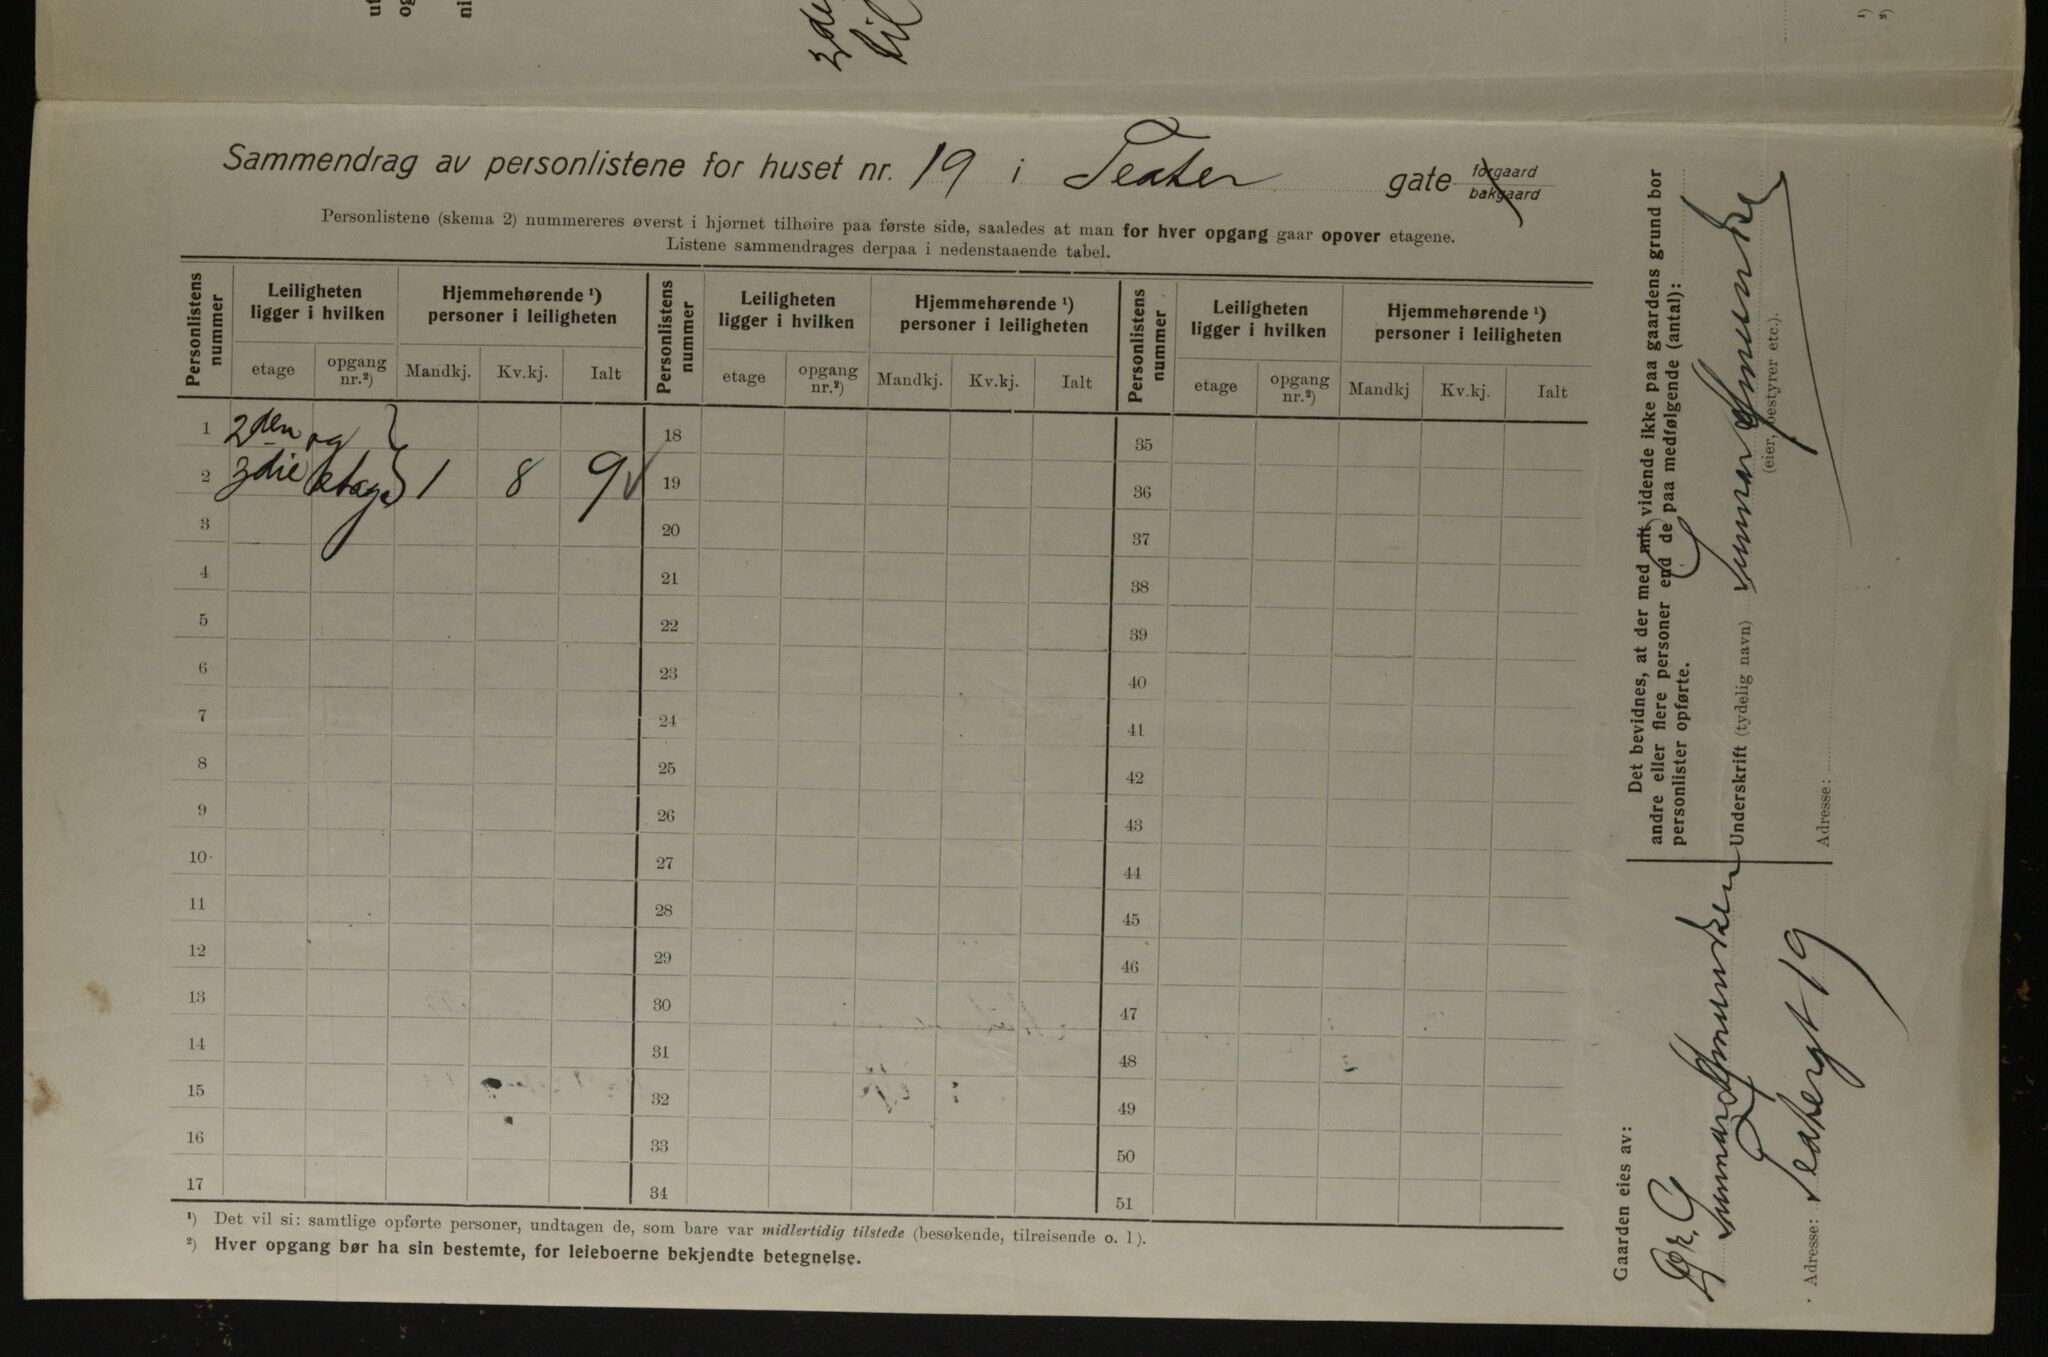 2die
til
Sammendrag av personlistene for huset nr. 19 i Teater gate forgaard bakgaard
Personlistene (skema 2) nummereres øverst i hjørnet tilhøire paa første side, saaledes at man for hver opgang gaar opover etagene.
Listene sammendrages derpaa i nedenstaaende tabel.
Personlistens nummer Leiligheten ligger i hvilken Hjemmehørende ¹) personer i leiligheten Personlistens nummer Leiligheten ligger i hvilken Hjemmehørende ¹) personer i leiligheten Personlistens nummer Leiligheten ligger i hvilken Hjemmehørende ¹) personer i leiligheten
etage opgang nr.²) Mandkj. Kv.kj. Ialt etage opgang nr.²) Mandkj. Kv.kj. Ialt etage opgang nr.²) Mandkj Kv.kj. Ialt
1 2den og 18 35
2 3die etage 1 8 9 19 36
3 20 37
4 21 38
5 22 39
6 23 40
7 24 41
8 25 42
9 26 43
10 27 44
11 28 45
12 29 46
13 30 47
14 31 48
15 32 49
16 33 50
17 34 51
¹) Det vil si: samtlige opførte personer, undtagen de, som bare var midlertidig tilstede (besøkende, tilreisende o. l).
²) Hver opgang bør ha sin bestemte, for leieboerne bekjendte betegnelse.
Gaarden eies av:
Dr. G
Adresse: Teatergt 19
Det bevidnes, at der med mit vidende ikke paa gaardens grund bor
andre eller flere personer end de paa medfølgende (antal):
personlister opførte.
Underskrift (tydelig navn)
(eier, bestyrer etc.).
Adresse:
¹)
²)